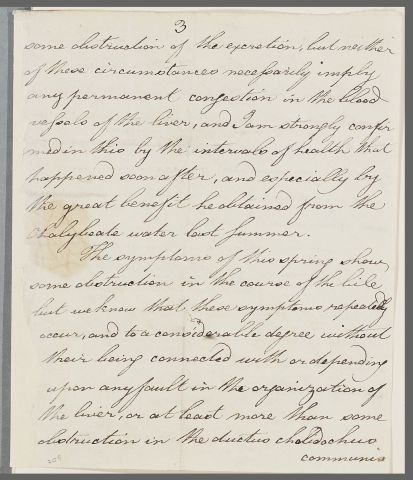 3
some obstruction of the excretion, but neither
of these circumstances necessarily imply
any permanent congestion in the blood
vessels of the liver, and I am strongly confir
med in this by the intervals of health that
happened soon after, and especially by
the great benefit he obtained from the
Chalybeate water last summer.
The symptoms of this spring show
some obstruction in the course of the bile
but we know that these symptoms repeatedly
occur, and to a considerable degree without
their being connected with or depending
upon any fault in the organization of
the liver, or at least more than some
obstruction in the ductus choledochus
communis